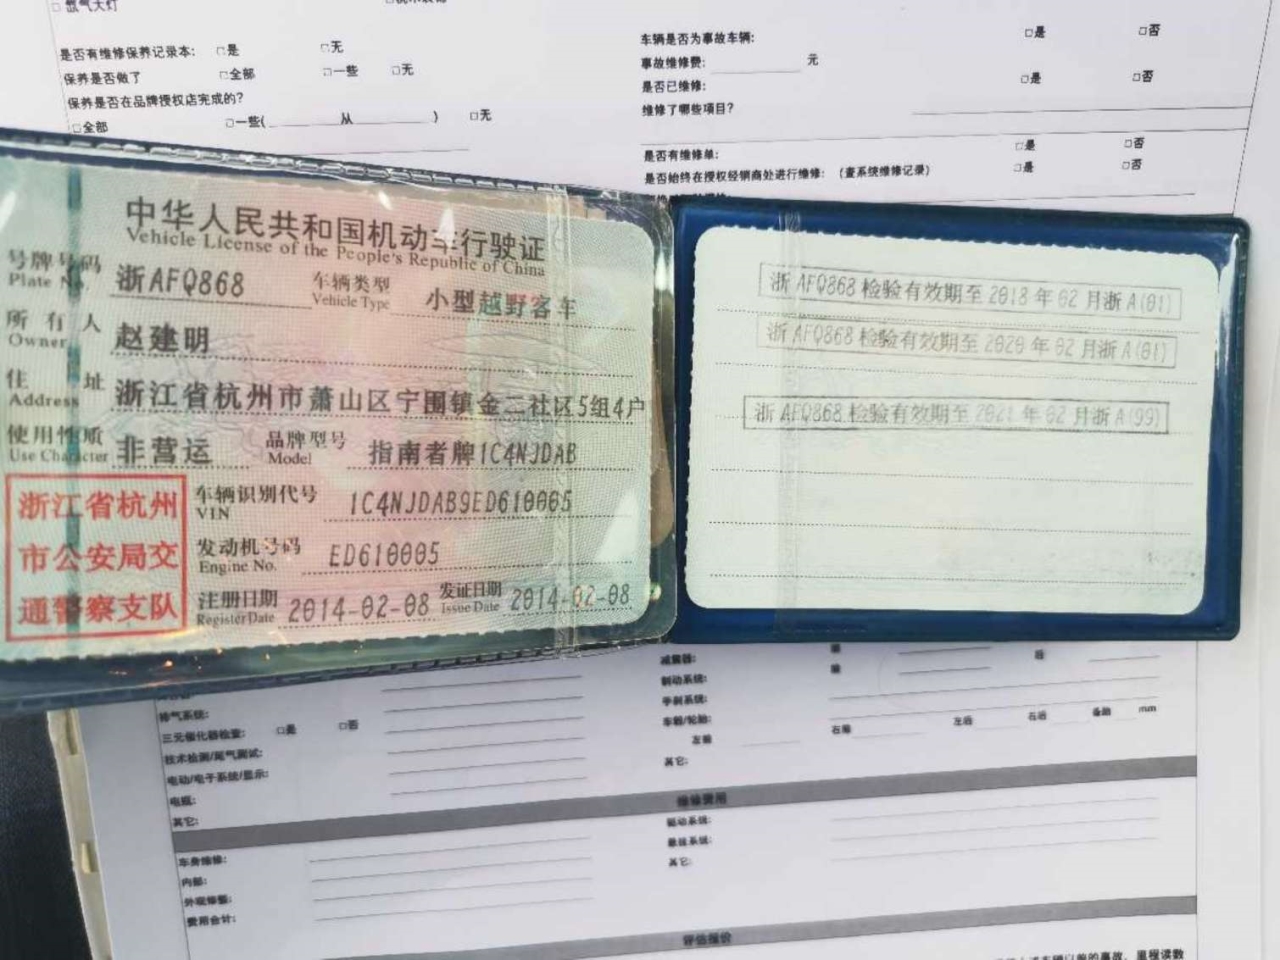 □ 氙气大灯
是否有维修保养记录本: □是 □无
保养是否做了 □全部 □一些 □无
保养是否在品牌授权店完成的?
□全部 □一些( 从 ) □无
车辆是否为事故车辆: □是 □否
事故维修费: 元
是否已维修: □是 □否
维修了哪些项目?
是否有维修单: □是 □否
是否始终在授权经销商处进行维修: (查系统维修记录) □是 □否
中华人民共和国机动车行驶证
Vehicle License of the People's Republic of China
号牌号码 浙AFQ868 车辆类型 小型越野客车
Plate No. Vehicle Type
所有人 赵建明
Owner
住址 浙江省杭州市萧山区宁围镇金二社区5组4户
Address
使用性质 非营运 品牌型号 指南者牌1C4NJDAB
Use Character Model
浙江省杭州
市公安局交
通警察支队
车辆识别代号 1C4NJDAB9ED610005
VIN
发动机号码 ED610005
Engine No.
注册日期 2014-02-08 发证日期 2014-02-08
Register Date Issue Date
浙 AFQ868 检验有效期至 2018 年 02 月浙 A(01)
浙 AFQ868 检验有效期至 2020 年 02 月浙 A(01)
浙 AFQ868 检验有效期至 2021 年 02 月浙 A(99)
排气系统:
三元催化器检查: □是 □否
技术检测/尾气测试:
电动/电子系统/显示:
电瓶:
其它:
减震器: 前 后
制动系统: 前
手刹系统:
车胎/轮胎: 左前 右前 左后 右后 备胎 mm
其它:
维修费用
车身维修:
内部:
外观修整:
费用合计:
驱动系统:
悬挂系统:
其它:
评估报价